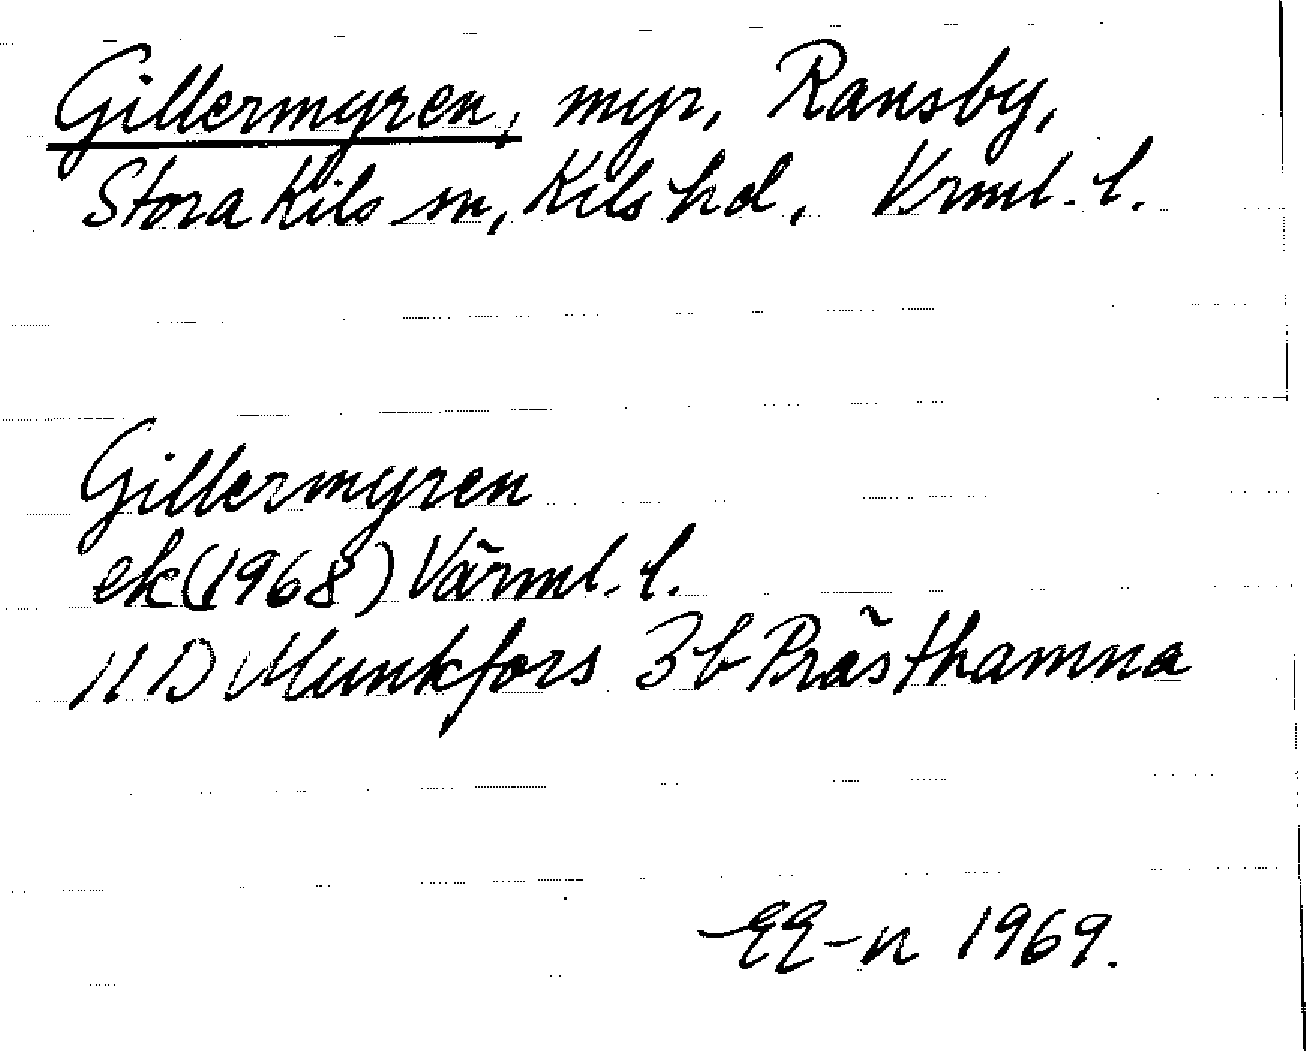 Gillermyren, myr, Ransby,
Stora Kils sn, Kils hd, Vrml. l.
Gillermyren
ek (1968) Värml. l.
11 D Munkfors 3b Prästhamna
EE-n 1969.